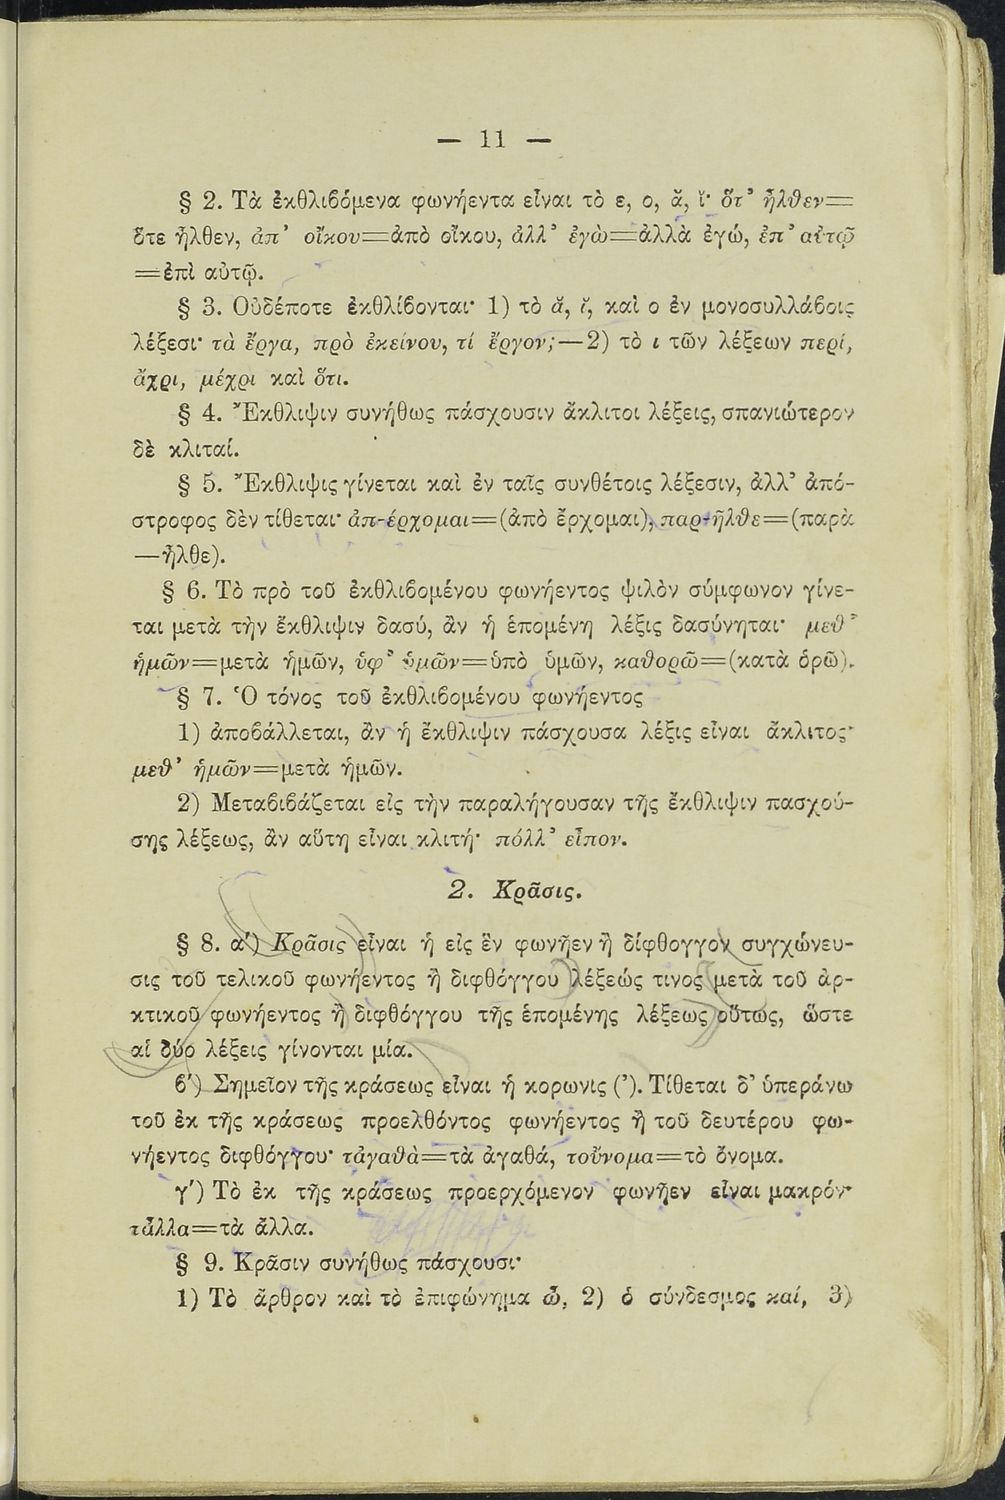 — 11 —
§ 2. Τὰ ἐκθλιβόμενα φωνήεντα εἶναι τὸ ε, ο, ᾰ, ῐ· ὅτ᾽ ἦλθεν=
ὅτε ἦλθεν, ἀπ᾽ οἴκου=ἀπὸ οἴκου, ἀλλ᾽ ἐγὼ=ἀλλὰ ἐγώ, ἐπ᾽ αὐτῷ
=ἐπὶ αὐτῷ.
§ 3. Οὐδέποτε ἐκθλίβονται· 1) τὸ ᾰ, ῐ, καὶ ο ἐν μονοσυλλάβοις
λέξεσι· τὰ ἔργα, πρὸ ἐκείνου, τί ἔργον;—2) τὸ ι τῶν λέξεων περί,
ἄχρι, μέχρι καὶ ὅτι.
§ 4. Ἔκθλιψιν συνήθως πάσχουσιν ἄκλιτοι λέξεις, σπανιώτερον
δὲ κλιταί.
§ 5. Ἔκθλιψις γίνεται καὶ ἐν ταῖς συνθέτοις λέξεσιν, ἀλλ᾽ ἀπό-
στροφος δὲν τίθεται· ἀπ-έρχομαι=(ἀπὸ ἔρχομαι), παρ-ῆλθε=(παρὰ
—ἦλθε).
§ 6. Τὸ πρὸ τοῦ ἐκθλιβομένου φωνήεντος ψιλὸν σύμφωνον γίνε-
ται μετὰ τὴν ἔκθλιψιν δασύ, ἂν ἡ ἑπομένη λέξις δασύνηται· μεθ᾽
ἡμῶν=μετὰ ἡμῶν, ὑφ᾽ ὑμῶν=ὑπὸ ὑμῶν, καθορῶ=(κατὰ ὁρῶ).
§ 7. Ὁ τόνος τοῦ ἐκθλιβομένου φωνήεντος
1) ἀποβάλλεται, ἂν ἡ ἔκθλιψιν πάσχουσα λέξις εἶναι ἄκλιτος·
μεθ᾽ ἡμῶν=μετὰ ἡμῶν.
2) Μεταβιβάζεται εἰς τὴν παραλήγουσαν τῆς ἔκθλιψιν πασχού-
σης λέξεως, ἂν αὕτη εἶναι κλιτή· πόλλ᾽ εἶπον.
2. Κρᾶσις.
§ 8. α΄) Κρᾶσις εἶναι ἡ εἰς ἓν φωνῆεν ἢ δίφθογγον συγχώνευ-
σις τοῦ τελικοῦ φωνήεντος ἢ διφθόγγου λέξεώς τινος μετὰ τοῦ ἀρ-
κτικοῦ φωνήεντος ἢ διφθόγγου τῆς ἑπομένης λέξεως οὕτως, ὥστε
αἱ δύο λέξεις γίνονται μία.
β΄) Σημεῖον τῆς κράσεως εἶναι ἡ κορωνὶς (᾽). Τίθεται δ᾽ ὑπεράνω
τοῦ ἐκ τῆς κράσεως προελθόντος φωνήεντος ἢ τοῦ δευτέρου φω-
νήεντος διφθόγγου· τἀγαθὰ=τὰ ἀγαθά, τοὔνομα=τὸ ὄνομα.
γ΄) Τὸ ἐκ τῆς κράσεως προερχόμενον φωνῆεν εἶναι μακρόν·
τἆλλα=τὰ ἄλλα.
§ 9. Κρᾶσιν συνήθως πάσχουσι·
1) Τὸ ἄρθρον καὶ τὸ ἐπιφώνημα ὦ, 2) ὁ σύνδεσμος καί, 3)